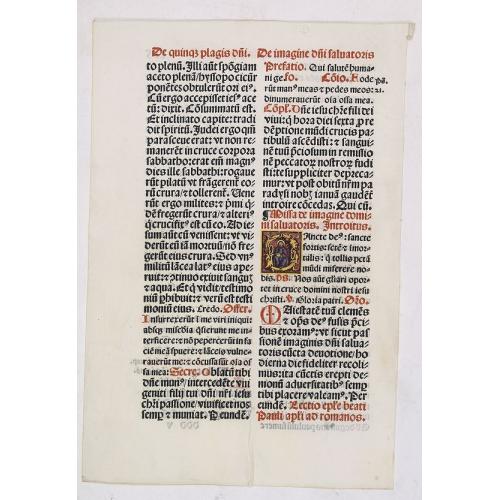 De quinq3 plagis dñi.
to plenū. Illi aūt spōgiam
aceto plenā/hyssopo circūm
ponētes obtulerūt ori ei9.
Cū ergo accepisset ies9 ace
tū: dixit. Cōsummatū est.
Et inclinato capite: tradi
dit spiritū. Judei ergo qm̄
parasceue erat: vt non re
manerēt in cruce corpora
sabbatho: erat eim̄ magn9
dies ille sabbathi: rogaue
rūt pilatū vt frāgerent eorū
crura/et tollerent. Uene
rūt ergo milites: et primi qdē
fregerūt crura/et alteri9
q crucifix9 est cū eo. Ad ie
sum aūt cū venissent: vt vi
derūt eū iā mortuū/nō fre
gerūt eius crura. Sed vn9
militū lācea lat9 eius ape
ruit: et cōtinuo exiuit sanguis
et aqua. Et q vidit/testimo
niū phibuit: et verū est testi
moniū eius. Credo. Offer.
Insurrexerūt in me viri iniqui:
absq3 misericordia quesierunt me in
terficere: et nō pepercerūt in fa
ciē meā spuere: et lāceis vulne
rauerūt me: et cōcussa sūt oīa os
sa mea. Secre. Oblatū tibi
dñe mun9/intercedēte vni
geniti filij tui dñi nr̄i iesu
chr̄i passione/viuificet nos
semp et muniat. Per eundē.
De imagine dñi saluatoris
Prefatio. Qui salutē huma
ni ge. fo. Cōio. Foderūt
man9 meas et pedes meos: et
dinumerauerūt oīa ossa mea.
Cōpl. Dñe iesu chr̄e fili dei
viui: q hora diei sexta pro re
dēptione mūdi crucis pa
tibulū ascēdisti: et sangui
nē tuū pciosum in remissio
nē peccatorū nostrorū fudi
sti: te suppliciter depreca
mur: vt post obitū nr̄m pa
radysi nob ianuā gaudēter
introire cōcedas. Qui cū.
Missa de imagine domi
ni saluatoris. Introitus.
Sancte de9: sancte
fortis: setē et im
mortalis: q tollis pctā
mūdi miserere no
bis. ps. Nos aūt gl̄iari opor
tet in cruce domini nostri iesu
christi. v. Gloria patri. Orō.
Maiestatē tuā clemēs
et oips de9 fusis pci
bus exoram9: vt sicut pas
sionē imaginis dñi salua
toris cūcta deuotione/ho
dierna die fideliter recoli
mus: ita cūctis erepti de
monū aduersitatib9 semp
tibi placere valeam9. Per
eundē. Lectio epl̄e beati
Pauli apl̄i ad romanos.